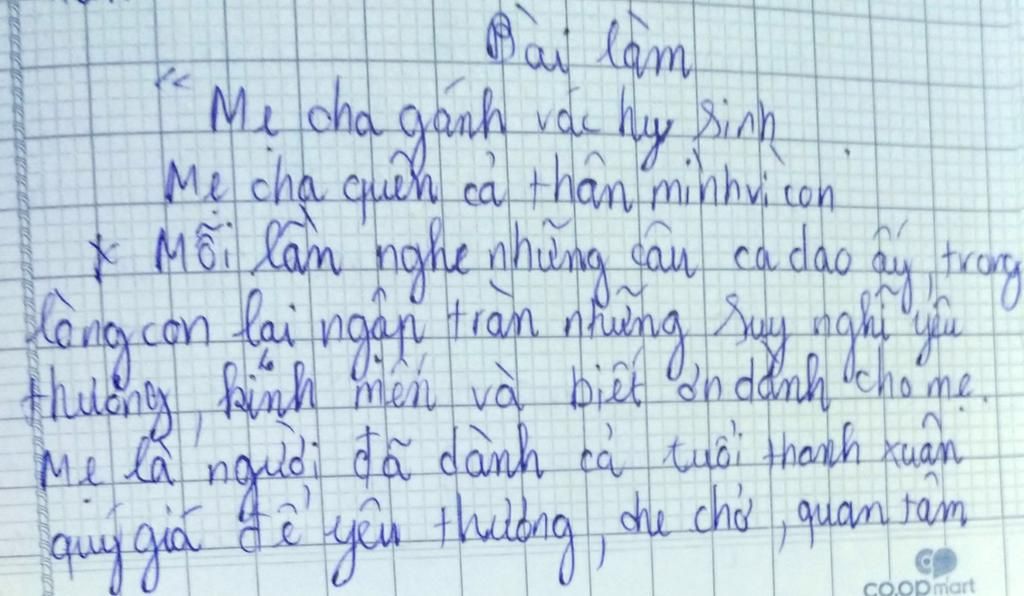 Bài làm
“ Mẹ cha gánh vác hy sinh
Mẹ cha quên cả thân mình vì con
* Mỗi lần nghe những câu ca dao ấy, trong
lòng con lại ngập tràn những suy nghĩ yêu
thương, kính mến và biết ơn dành cho mẹ.
Mẹ là người đã dành cả tuổi thanh xuân
quý giá để yêu thương, che chở, quan tâm
CO.OPmart